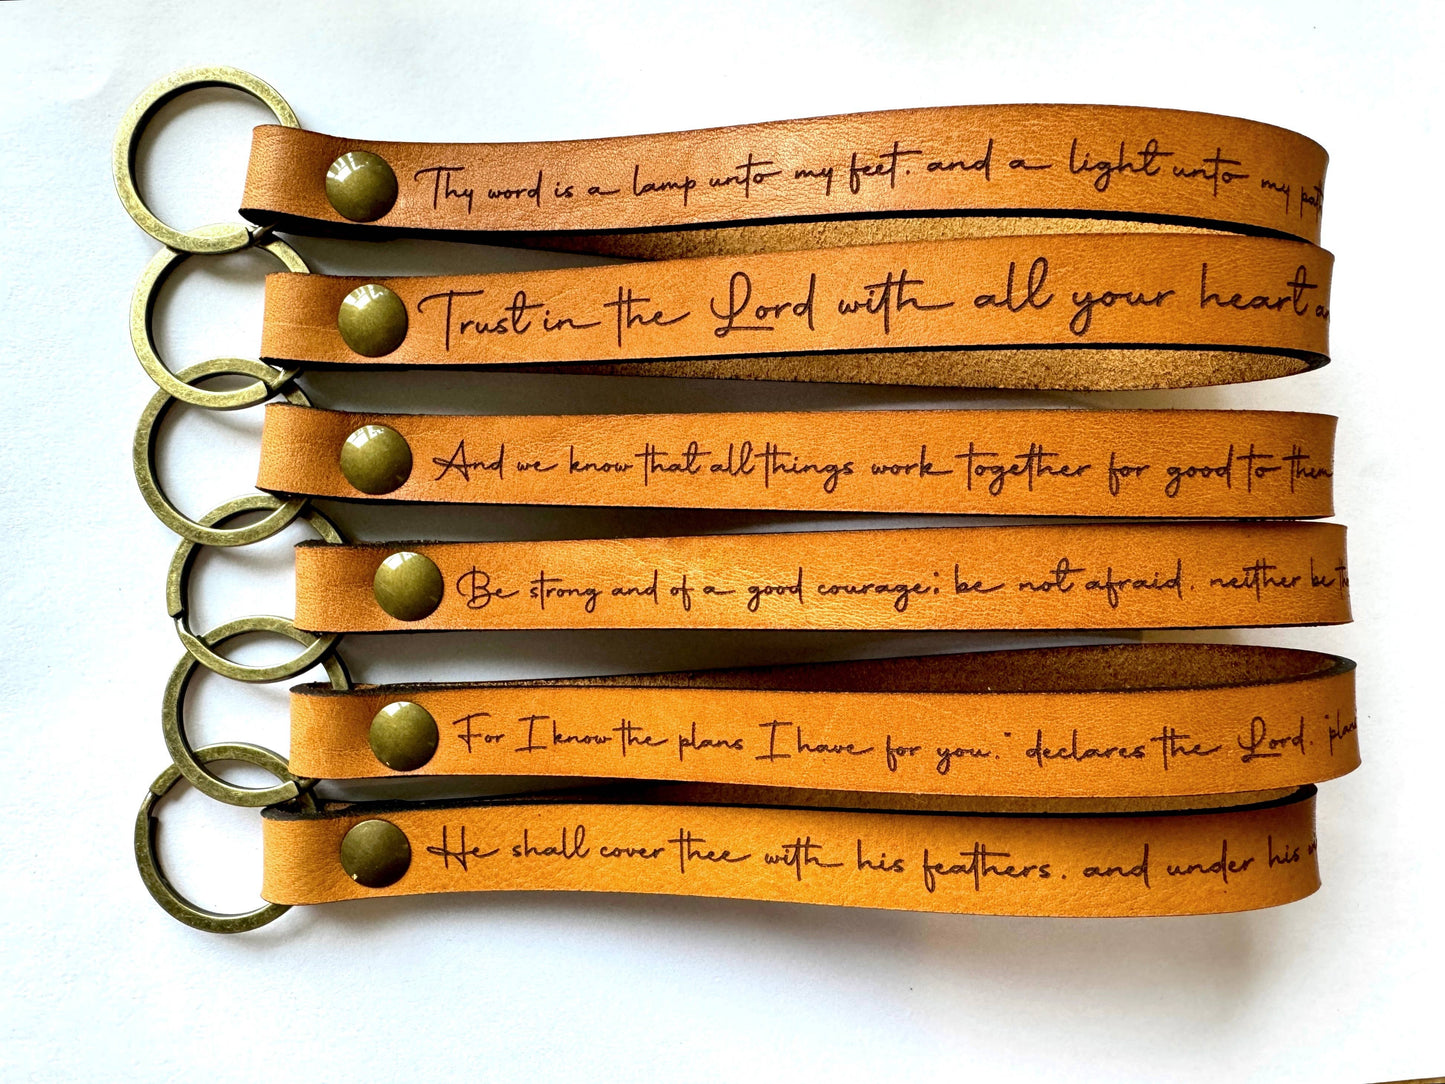 Thy word is a lamp unto my feet, and a light unto my pat
Trust in the Lord with all your heart a
And we know that all things work together for good to them
Be strong and of a good courage; be not afraid, neither be
For I know the plans I have for you," declares the Lord, "plan
He shall cover thee with his feathers, and under his